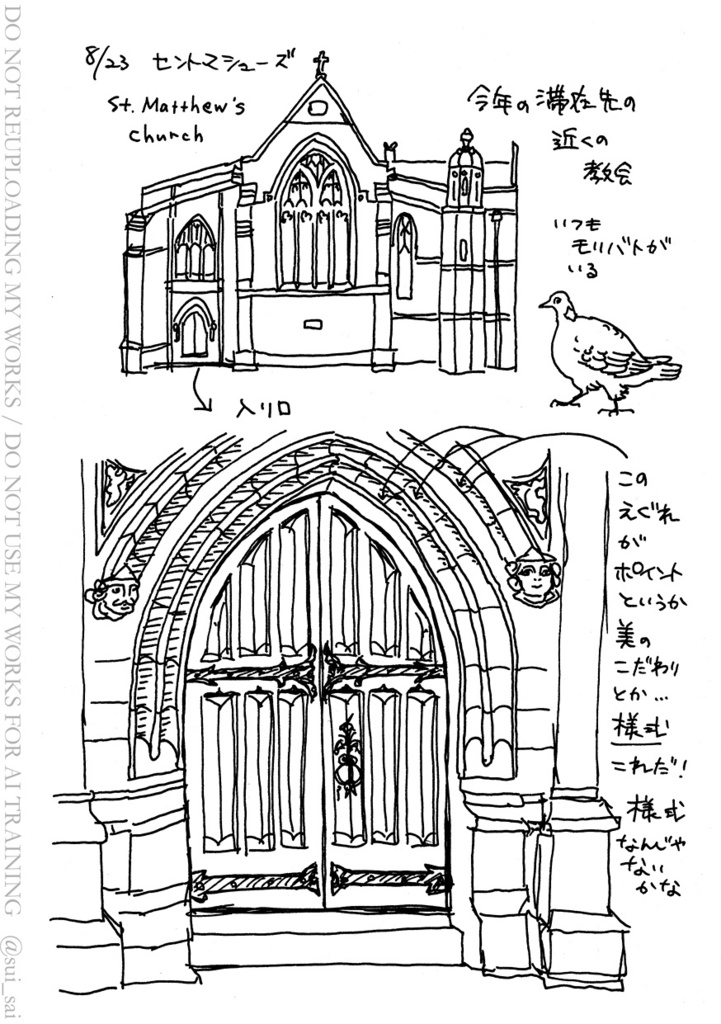 8/23 セントマシューズ
St. Matthew's
Church
今年の滞在先の
近くの
教会
いつも
モリバトが
いる
入り口
この
えぐれ
が
ポイント
というか
美の
こだわり
とか…
様式
これだ!
様式
なんじゃ
ない
かな
DO NOT REUPLOADING MY WORKS / DO NOT USE MY WORKS FOR AI TRAINING @sui_sai